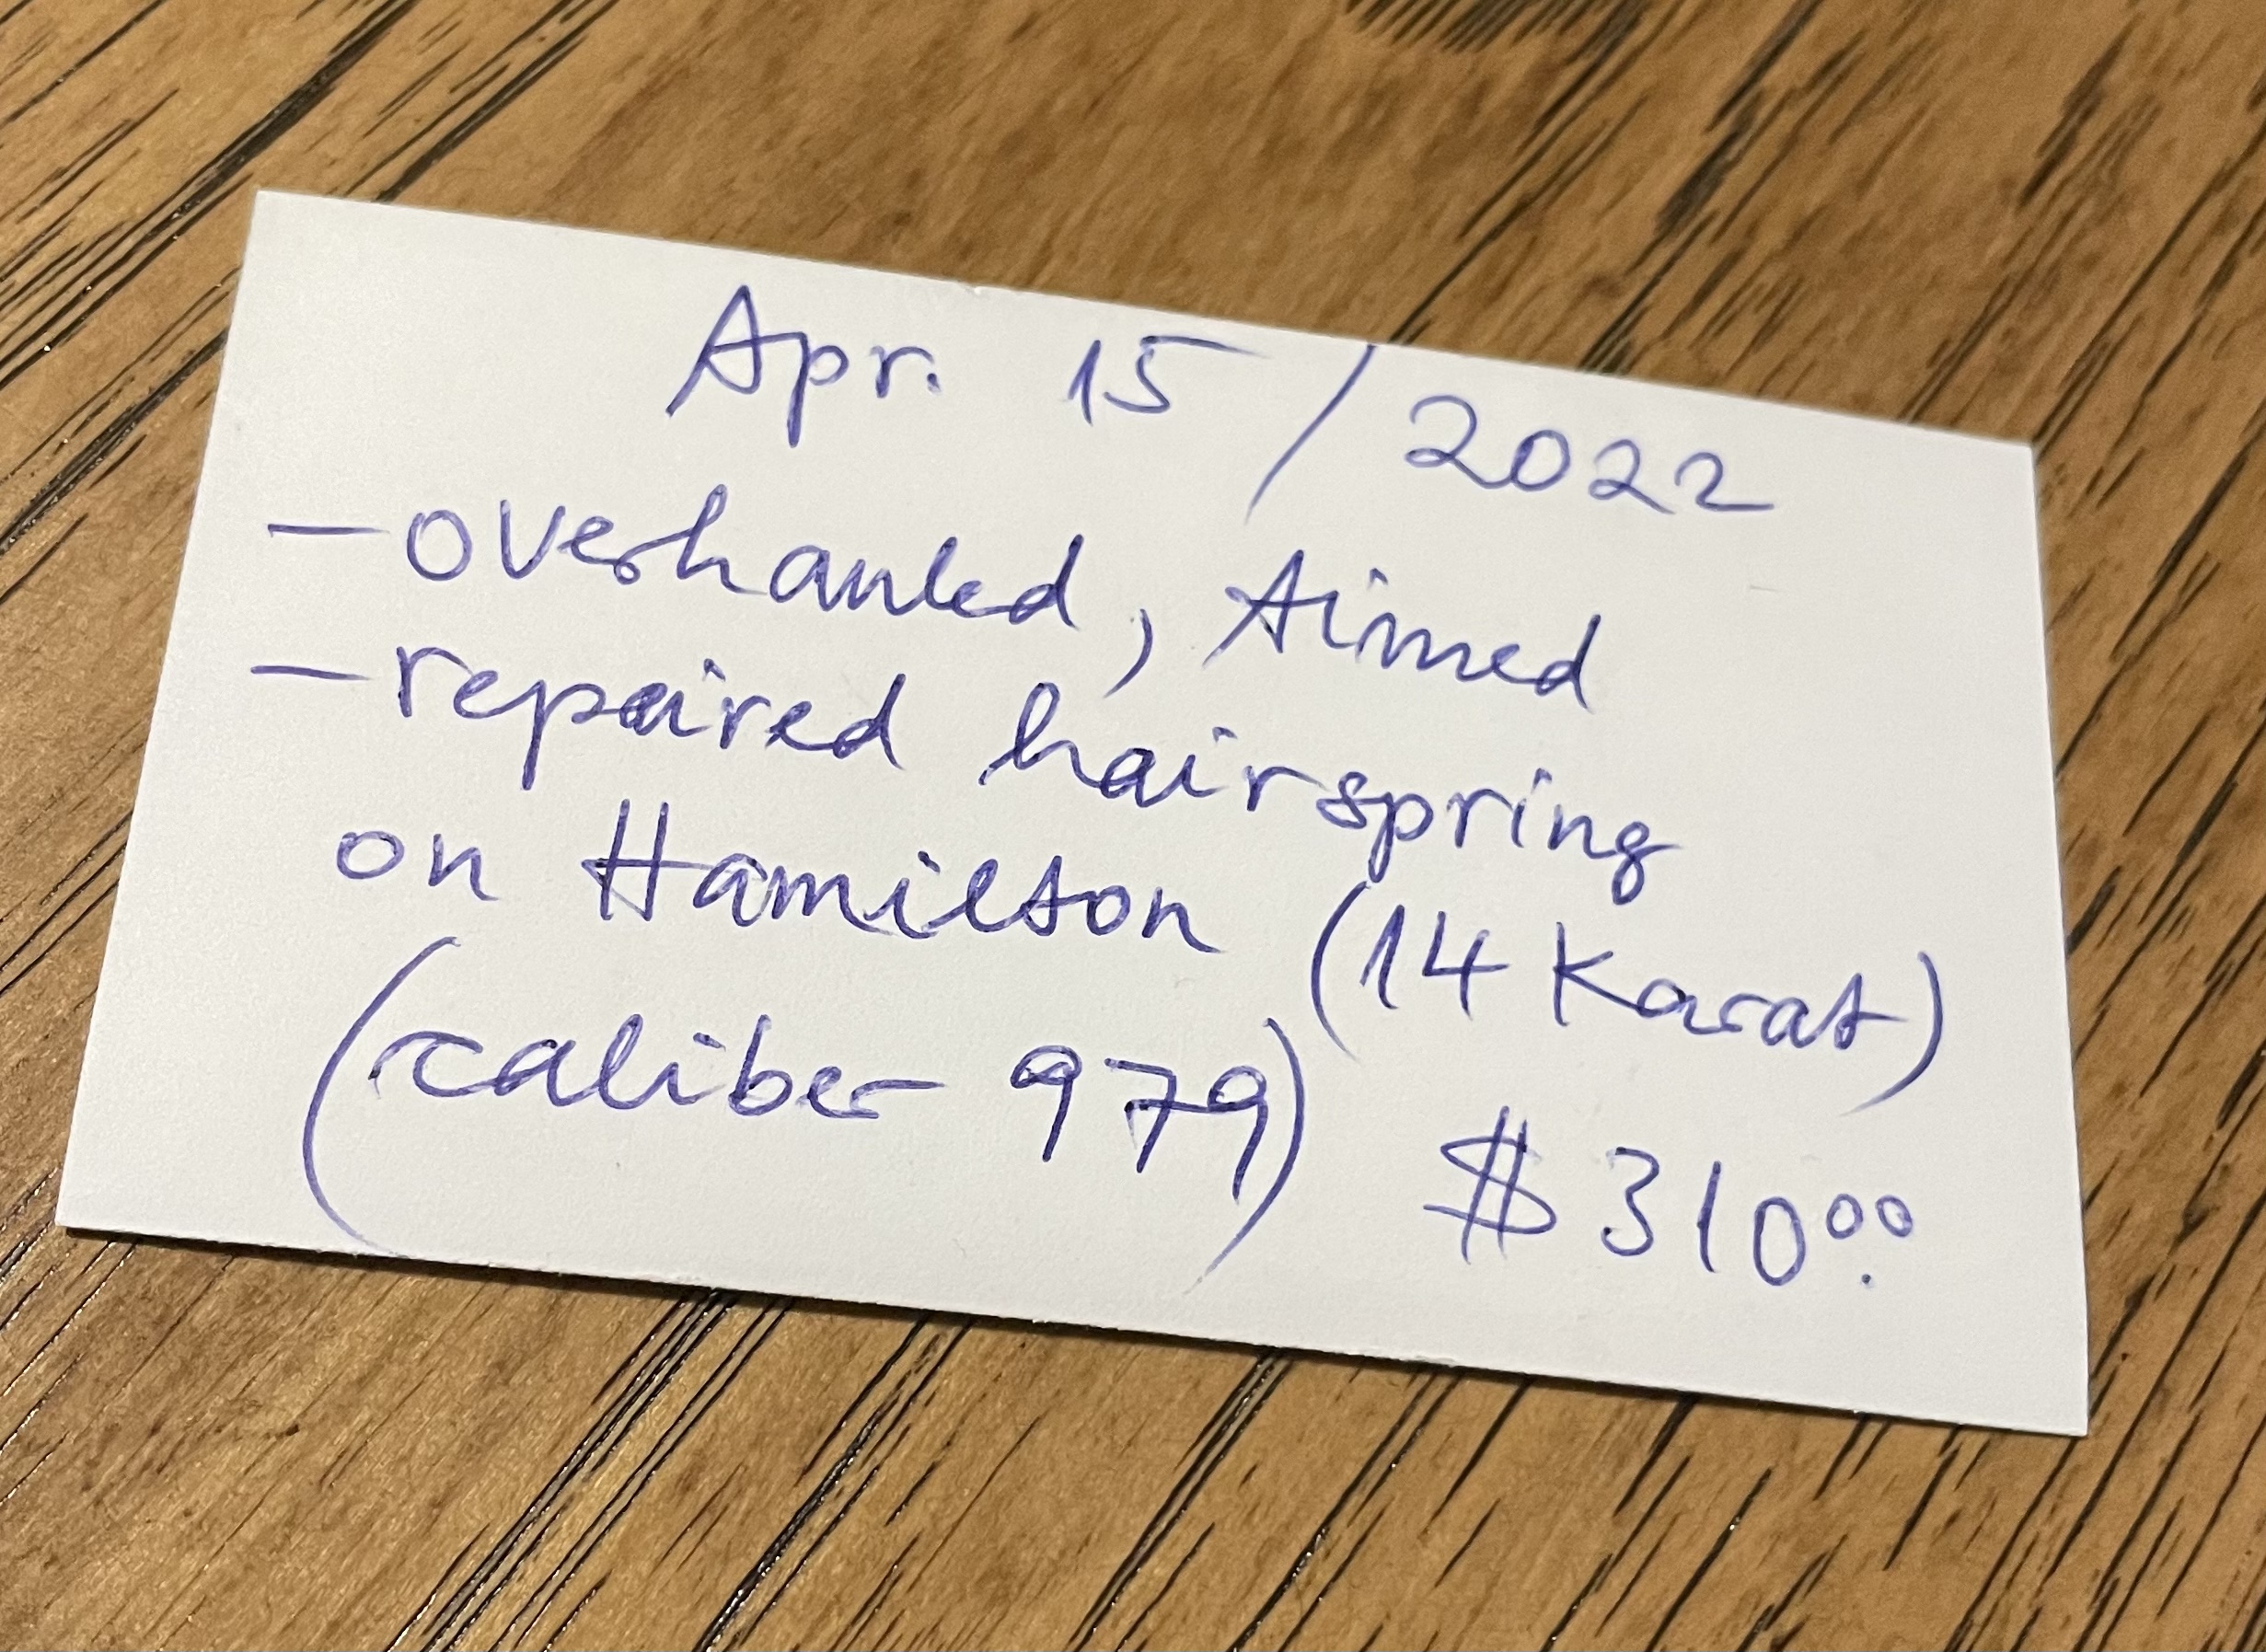 Apr. 15/2022
- overhauled, timed
- repaired hairspring
on Hamilton (14 Karat)
(caliber 979) $310.00